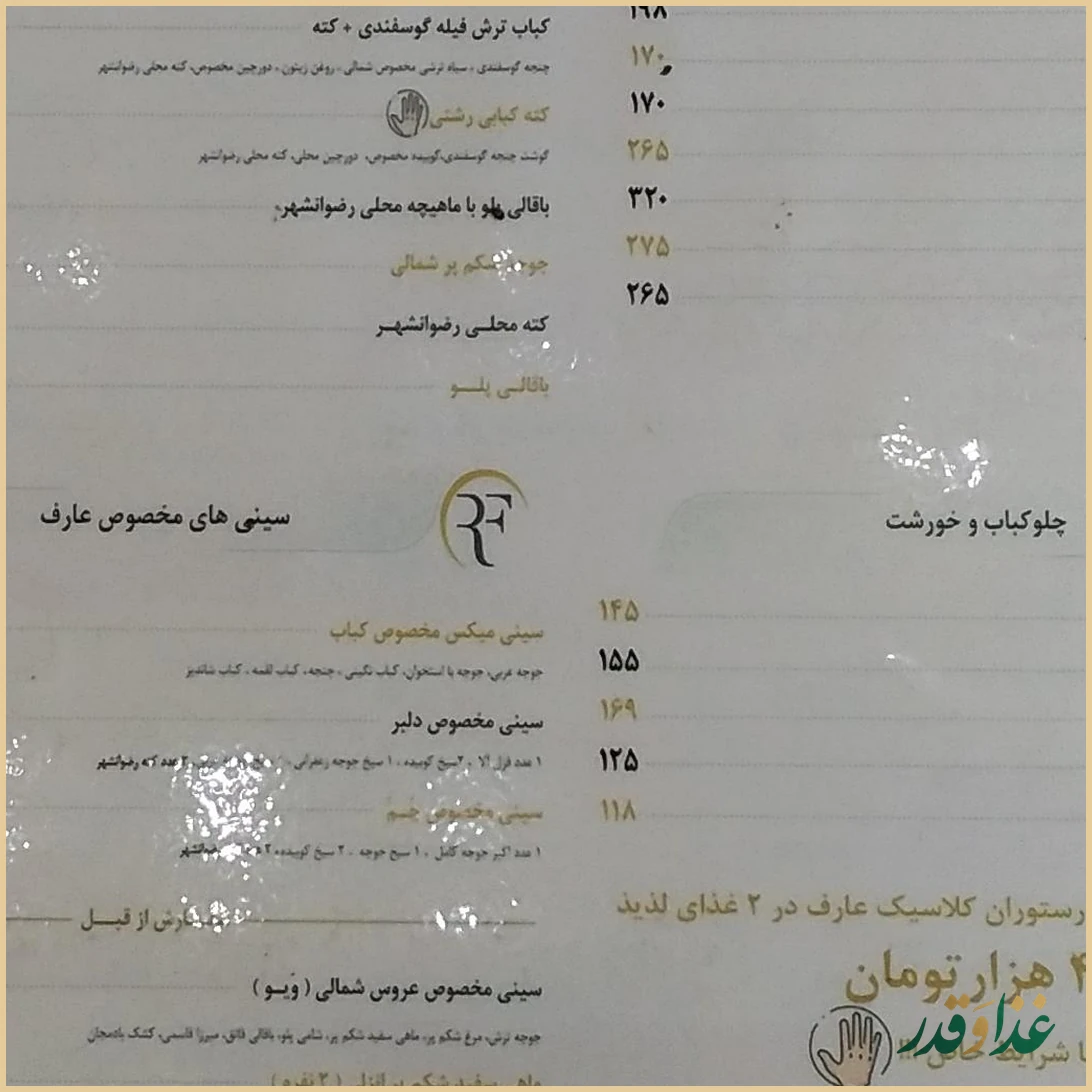 ۱۹۸
۱۷۰
۱۷۰
۲۶۵
۳۲۰
۲۷۵
۲۶۵
چلوکباب و خورشت
۱۴۵
۱۵۵
۱۶۹
۱۲۵
۱۱۸
رستوران کلاسیک عارف در ۲ غذای لذیذ
هزار تومان
شرایط خاص !!!
غذا و قدر
کباب ترش فیله گوسفندی + کته
چنجه گوسفندی ، سیاه ترشی مخصوص شمالی ، روغن زیتون ، دورچین مخصوص، کته محلی رضوانشهر
کته کبابی رشتی
گوشت چنجه گوسفندی،کوبیده مخصوص، دورچین محلی، کته محلی رضوانشهر
باقالی پلو با ماهیچه محلی رضوانشهر
جوجه شکم پر شمالی
کته محلی رضوانشهر
باقالی پلو
RF
سینی های مخصوص عارف
سینی میکس مخصوص کباب
جوجه عربی، جوجه با استخوان، کباب نگینی ، چنجه، کباب لقمه ، کباب شاندیز
سینی مخصوص دلبر
۱ عدد قزل آلا ، ۲سیخ کوبیده ، ۱ سیخ جوجه زعفرانی ، ۲ عدد کته رضوانشهر
سینی مخصوص خُـم
۱ عدد اکبر جوجه کامل ، ۱ سیخ جوجه ، ۲ سیخ کوبیده، ۲ رضوانشهر
سفارش از قبـل
سینی مخصوص عروس شمالی ( وَیـو )
جوجه ترش، مرغ شکم پر، ماهی سفید شکم پر، شامی پلو، باقالی قاتق، میرزا قاسمی، کشک بادمجان
ماهی سفید شکم پر انزلی ( ۲ نفره )